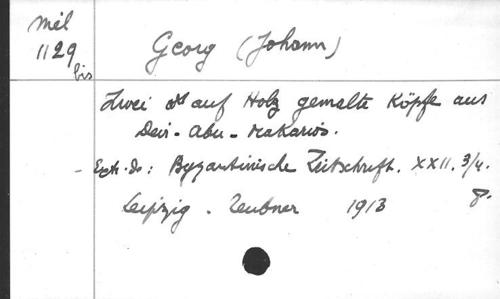 Mél
1129
bis
Georg (Johann)
Zwei auf Holz gemalte Köpfe aus
Deir-Abu-Makarios.
- Extr. de: Byzantinische Zeitschrift. XXII. 3/4.
Leipzig. Teubner 1913 8°.